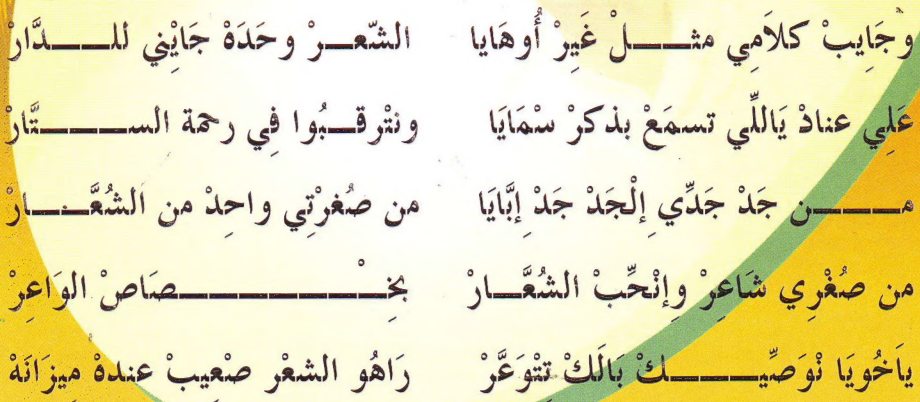 وجَايبْ كلاَمِي مثــــلْ غَيِرْ أُوهَايا الشّعــرْ وحَدَهْ جَايْنِي للــــدَّارْ
عَلِي عنادْ يَاللِّي تسمَعْ بذكرْ سْمَايَا ونتْرقــبُوا فِي رحمة الســــتَّارْ
مــــن جَدْ جَدِّي إلْجَدْ جَدْ إبَّايَا من صُغرْتِي واحِدْ من الشُعَّــــارْ
من صُغْرِي شَاعِرْ وإنْحِّبْ الشُعَّــارْ بخِــــــــصَاصْ الوَاعِرْ
ياَخُويَا نْوَصِّيــــكْ بَالَكْ تتْوَعَّرْ رَاهُو الشعْر صْعِيبْ عندهْ مِيزَانَهْ